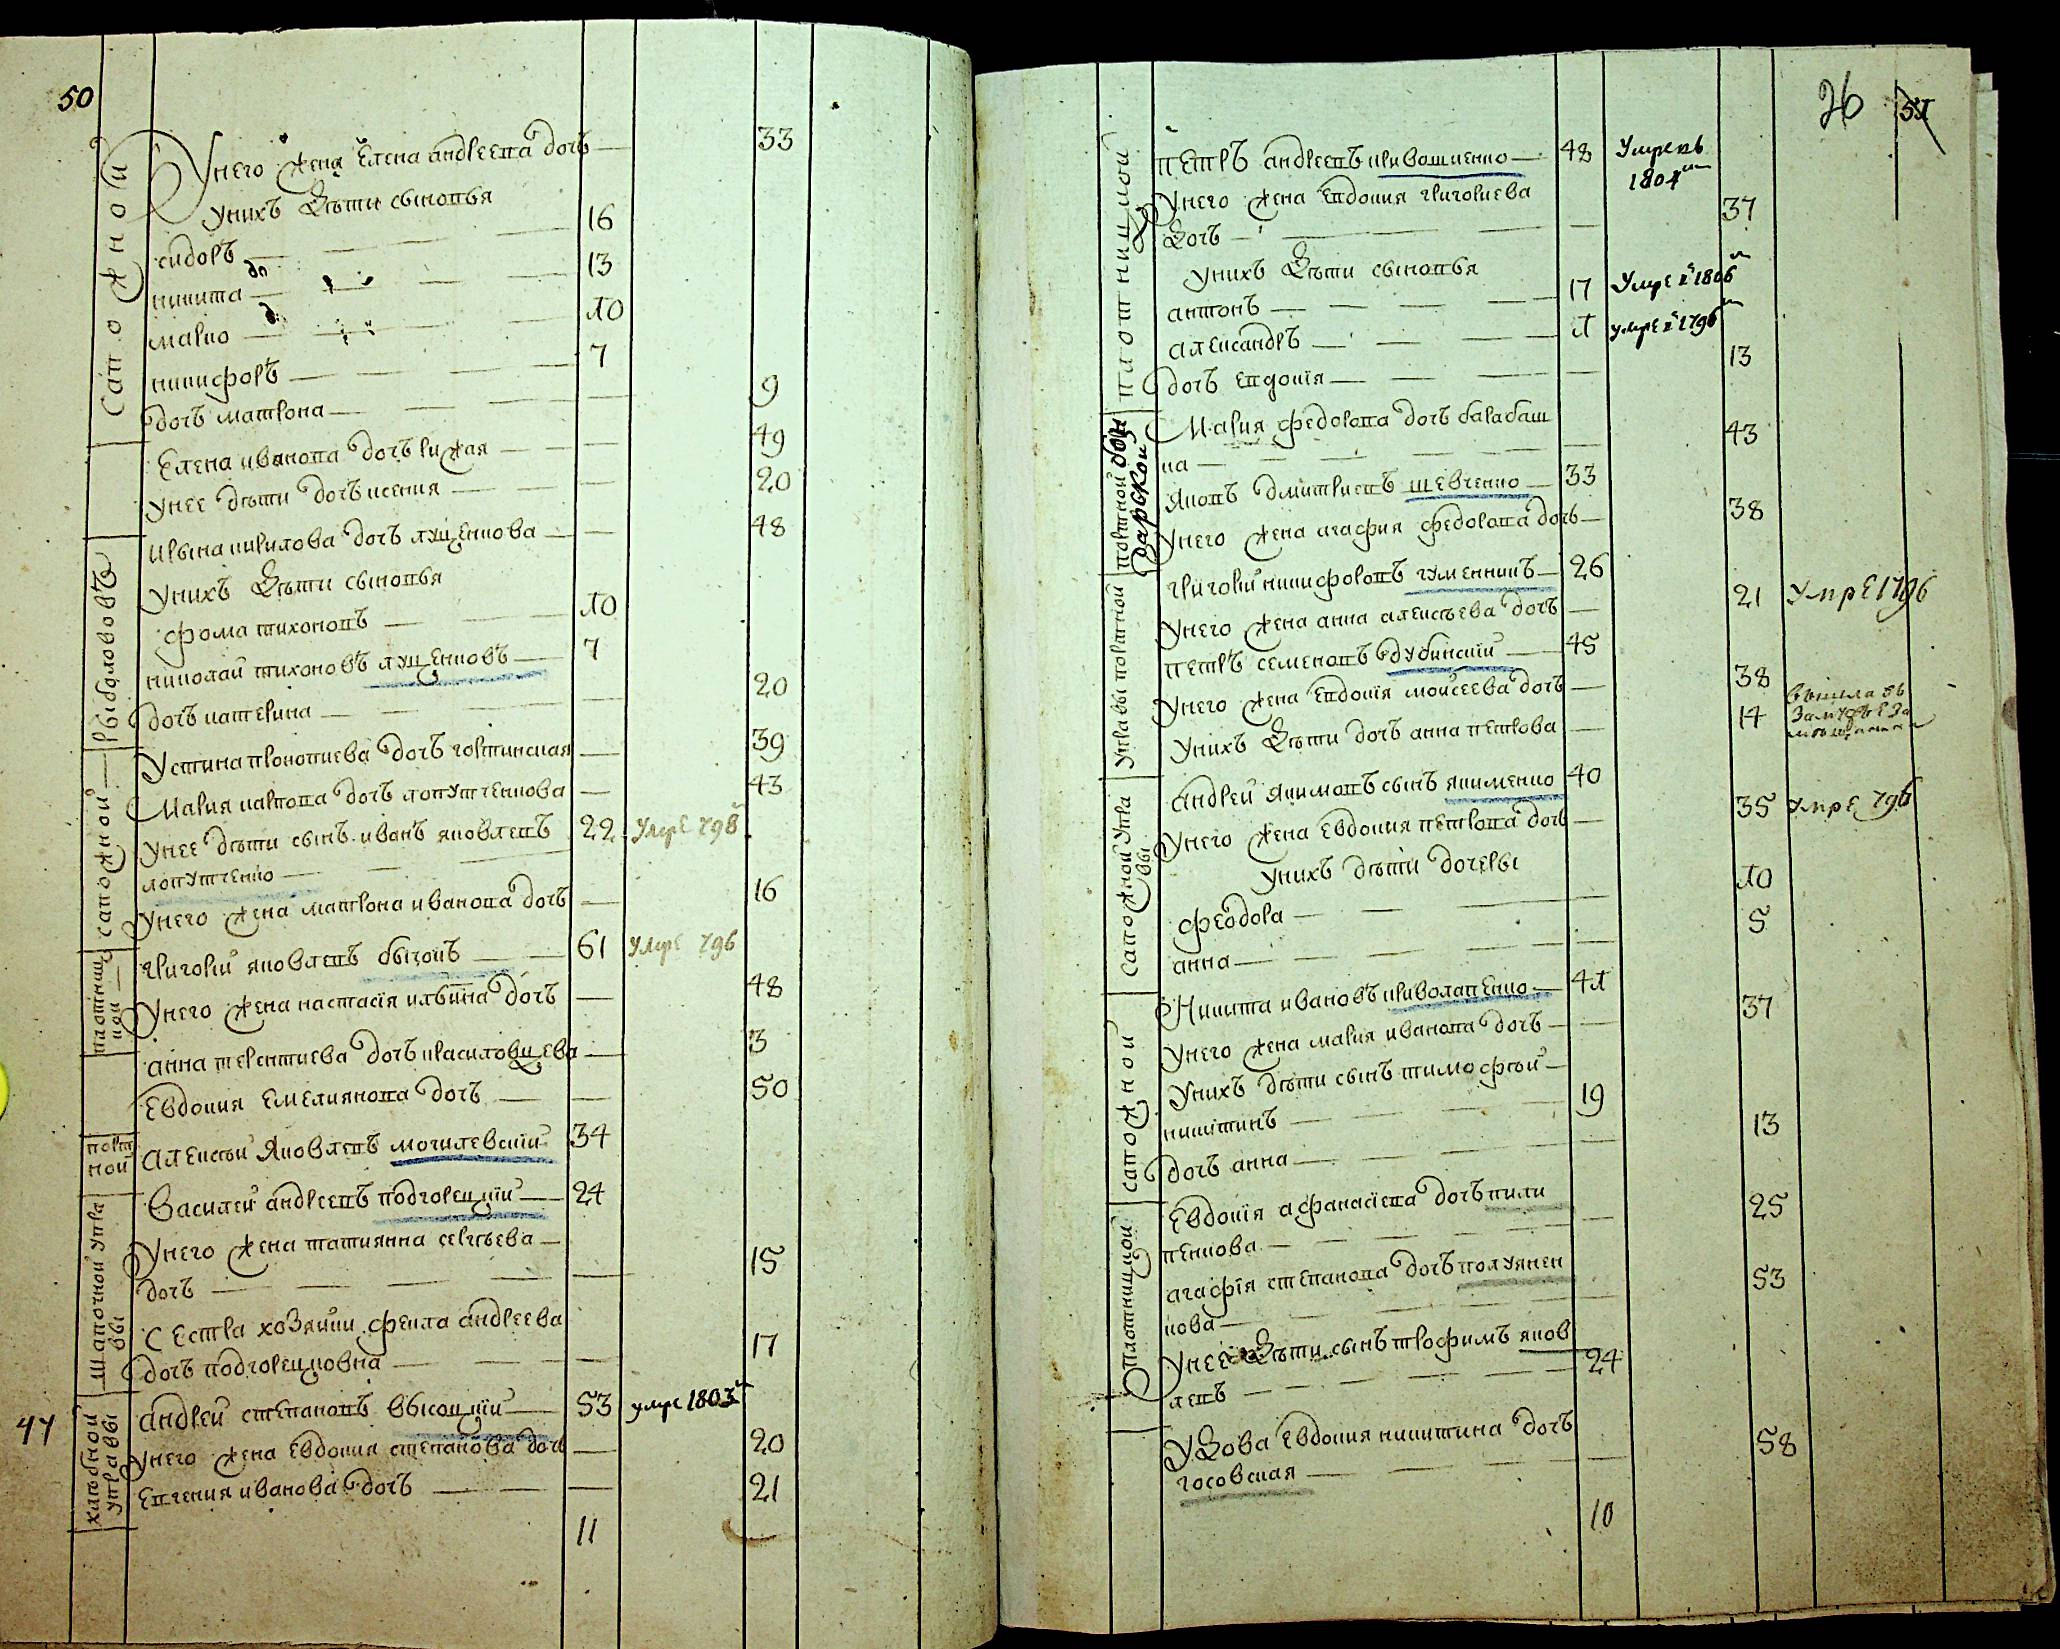 50
Сапожной
У него жена Елена андреева дочь 33
У нихъ дѣти сыновья
сидоръ 16
никита 13
марко 10
никифоръ 7
дочь матрона 9
Елена иванова дочь рижая 49
У нее дѣти дочь ксения 20
рыболововъ
Ирына кирилова дочь лущенкова 48
У нихъ дѣти сыновья
фома тихоновъ 10
николай тихоновъ лущенковъ 7
дочь катерина 20
сапожной
Устина прокопиева дочь горпинская 39
Мария карпова дочь лопутченкова 43
У нее дѣти сынъ иванъ яковлевъ 22 умре 798
лопутченко
У него жена матрона иванова дочь 16
плотницкой
григорий яковлевъ бычокъ 61 умре 796
У него жена настасия ильина дочь 48
анна терентиева дочь красиловцева 3
Евдокия Емелиянова дочь 50
портной
Алексѣй Яковлевъ могилевский 34
шапочной управы
Василей андреевъ подгорецкий 24
У него жена татиянна сергѣева
дочь 15
Сестра хозяйки фекла андреева
дочь подгорецковна 17
47
хлѣбной управы
андрей степановъ высоцкий 53 умре 1803
У него жена Евдокия степанова дочь 20
Евгения иванова дочь 21
11
26 51
плотницкой
петръ андреевъ ивашченко 48 Умре въ
1804
У него жена Евдокия григориева
дочь 37
У нихъ дѣти сыновья
антонъ 17 Умре в 1806
александръ 1 умре в 1796
дочь Евдокия 13
Мария федорова дочь балабаш
ка 43
портной
Яковъ дмитриевъ шевченко 33
У него жена агафия федорова дочь 38
управы портной
григорий никифоровъ гуменникъ 26
У него жена анна алексѣева дочь 21 Умре 1796
петръ семеновъ дубинский 45
У него жена Евдокия моисеева дочь 38
У нихъ дѣти дочь анна петрова 14
сапожной управы
андрей Якимовъ сынъ якименко 40
У него жена Евдокия петрова дочь 35 Умре 796
У нихъ дѣти дочеры
феодора 10
анна 5
сапожной
Никита ивановъ криволапенко 41
У него жена мария иванова дочь 37
У нихъ дѣти сынъ тимофѣй
никитинъ 19
дочь анна 13
плотницкой
Евдокия афанасиева дочь пили
пенкова 25
агафия степанова дочь полуянен
кова 53
У нее дѣти сынъ трофимъ яков
левъ 24
Удова Евдокия никитина дочь
госовская 58
10